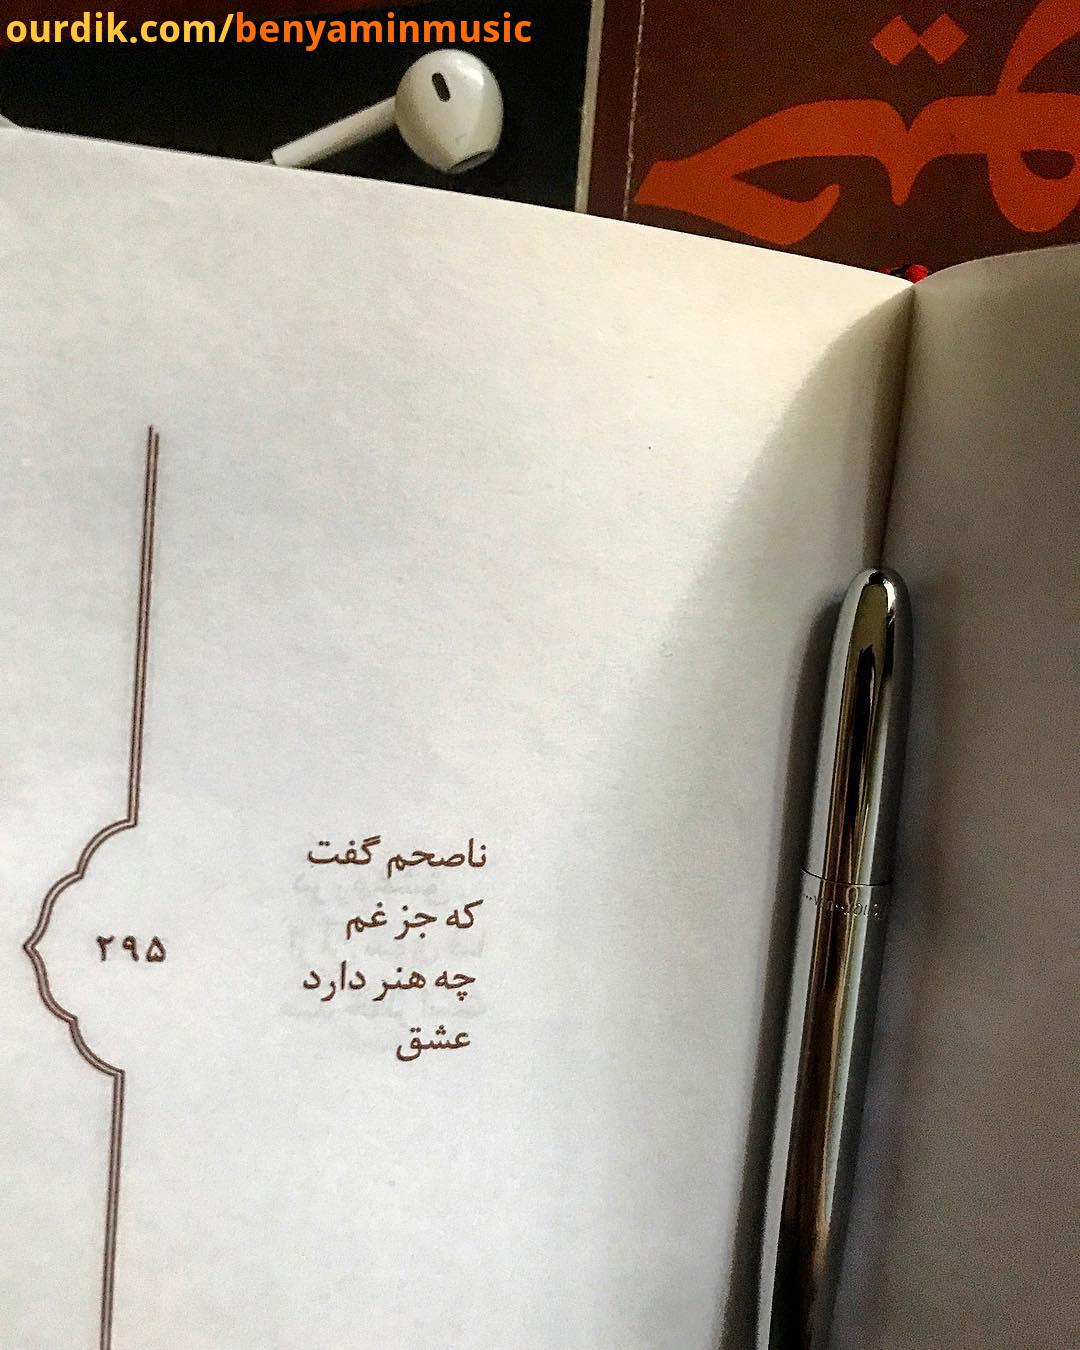 ourdik.com/benyaminmusic
ناصحم گفت
که جز غم
چه هنر دارد
عشق
۲۹۵